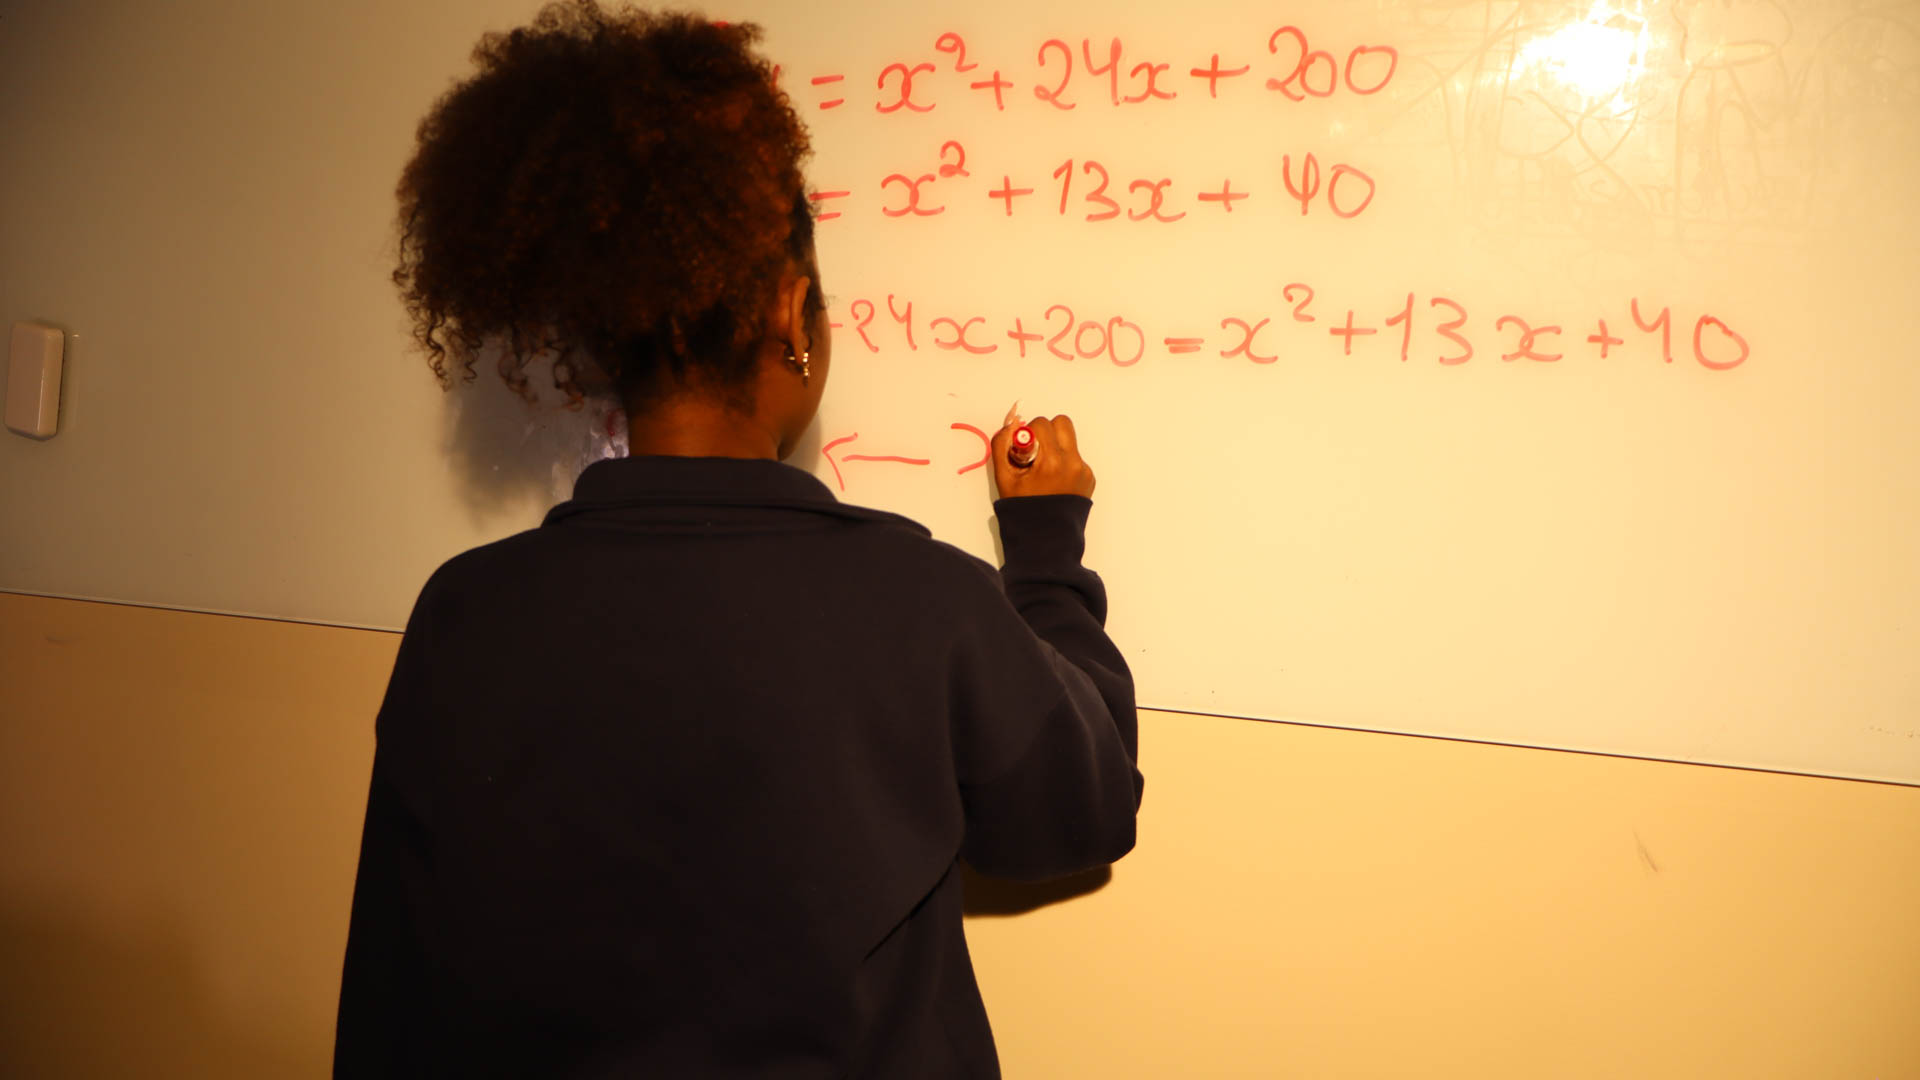 = x² + 24x + 200
= x² + 13x + 40
24x + 200 = x² + 13x + 40